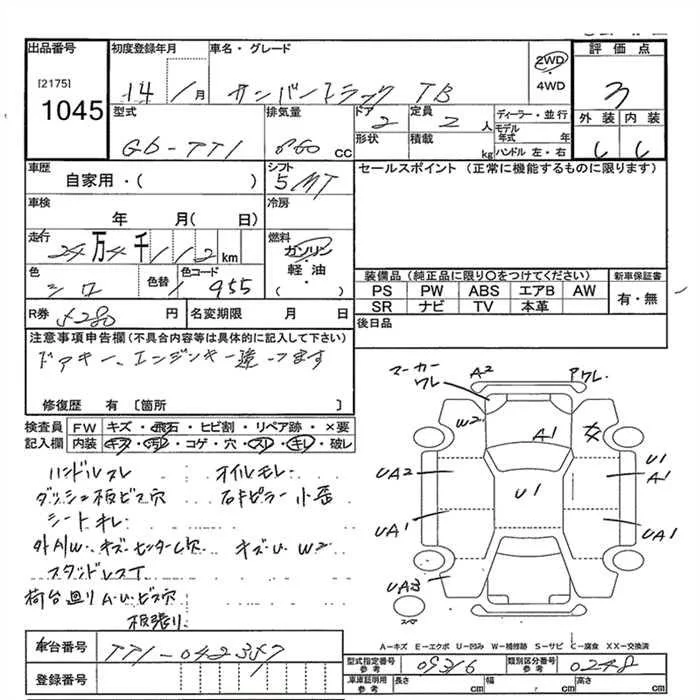 出品番号 初度登録年月 車名・グレード 2WD 4WD 評価点
[2175] 1045 14 1月 サンバートラック TB 3
型式 GD-TT1 排気量 660 cc ドア 2 定員 2 人 ディーラー・並行 外装 内装
形状 積載 kg モデル年式 年 ハンドル 左・右
車歴 自家用・( ) シフト 5MT セールスポイント (正常に機能するものに限ります)
車検 年 月( 日) 冷房
走行 24万4千112km 燃料 ガソリン・軽油・( )
色 シロ 色替 色コード 955
装備品(純正品に限り○をつけてください) 新車保証書
PS PW ABS エアB AW 有・無
SR ナビ TV 本革
R券 5280 円 名変期限 月 日 後日品
注意事項申告欄(不具合内容等は具体的に記入して下さい)
ドアキー、エンジンキー違ってます
修復歴 有〔箇所 〕
検査員 FW キズ・飛石・ヒビ割・リペア跡・×要
記入欄 内装 キズ・汚・コゲ・穴・スレ・キレ・破レ
ハンドルスレ オイルモレ
ダッシュ板ビス穴 右キピラー小歪
シートキレ
外A1W・キズ キズ・U・W2
荷台廻りA・U・ビス穴
板張り
マーカーワレ A2 アワレ
W2 A1
UA2 U1 U1 A1
UA1 UA1
UA3
A-キズ E-エクボ U-凹み W-補修跡 S-サビ C-腐食 XX-交換済
車台番号 TT1-042387
登録番号
型式指定番号 参考 09316 類別区分番号 参考 0248
車庫証明用 参考 長さ cm 幅 cm 高さ cm